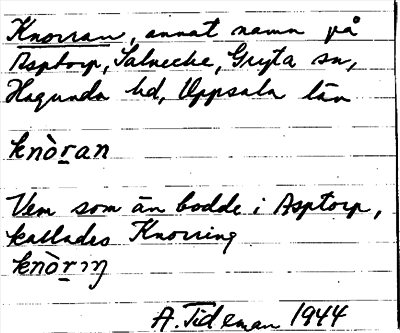 Knorran, annat namn på
Asptorp, Salnecke, Gryta sn,
Hagunda hd, Uppsala län
knòran
Vem som än bodde i Asptorp,
kallades Knorring
knòrıŋ
A. Tideman 1944